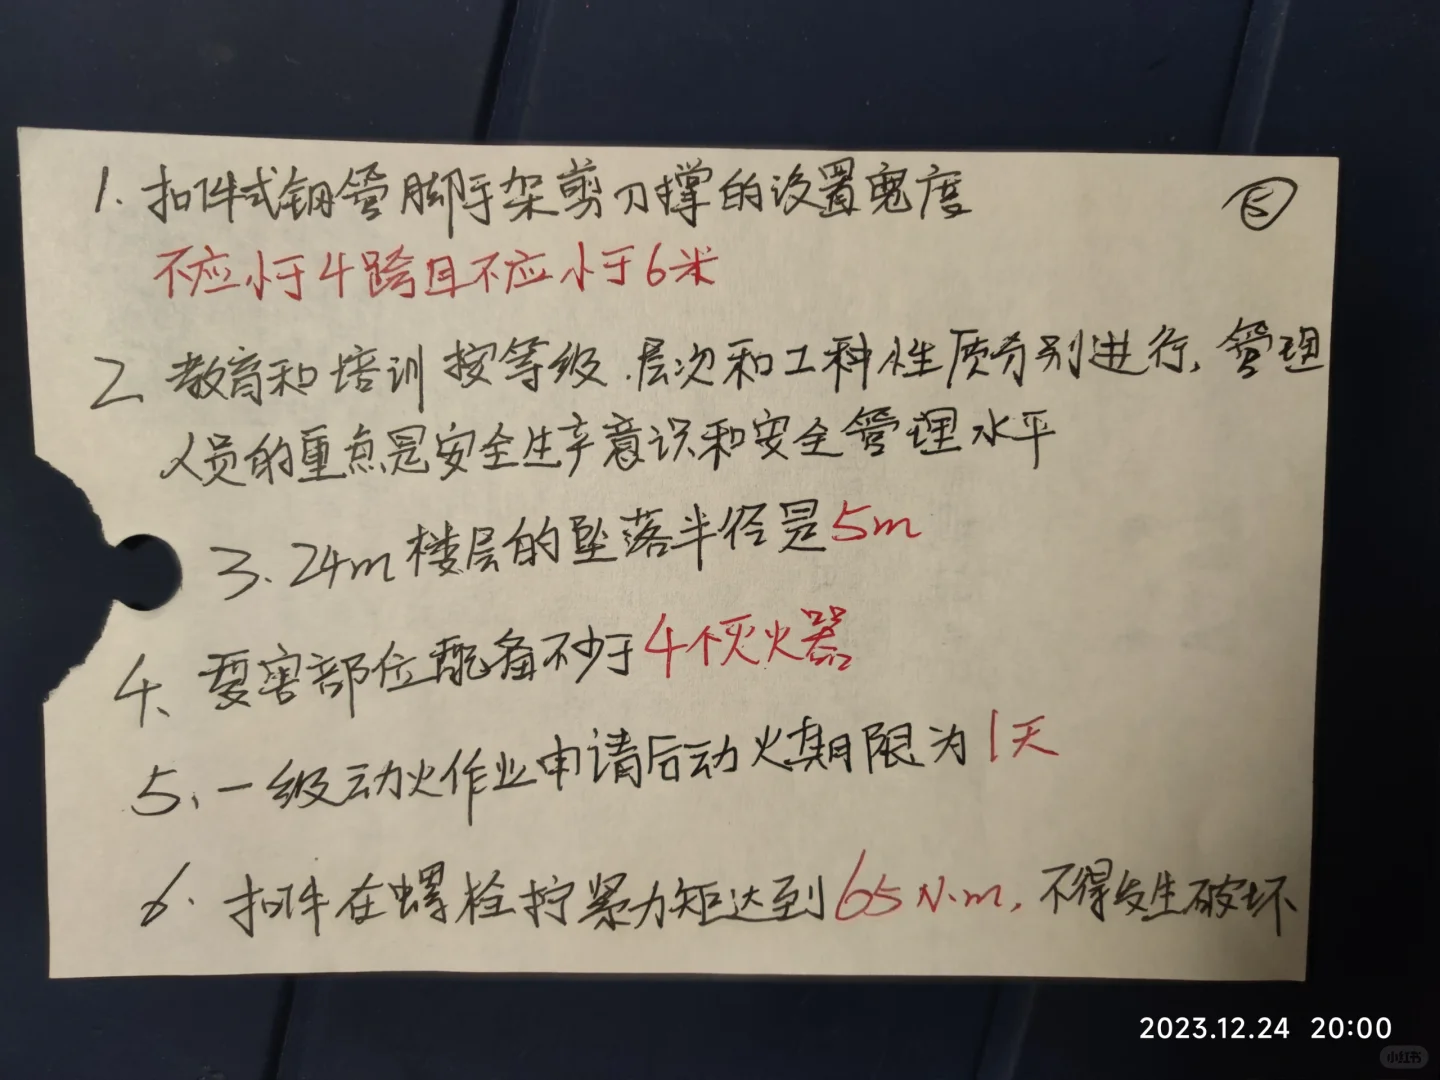 1. 扣件式钢管脚手架剪刀撑的设置宽度
⑤
不应小于4跨且不应小于6米
2 教育和培训按等级、层次和工科性质分别进行,管理
人员的重点是安全生产意识和安全管理水平
3、24m楼层的坠落半径是5m
4、要害部位配备不少于4个灭火器
5、一级动火作业申请后动火期限为1天
6. 扣件在螺栓拧紧力矩达到65N.m,不得发生破坏
2023.12.24 20:00
小红书